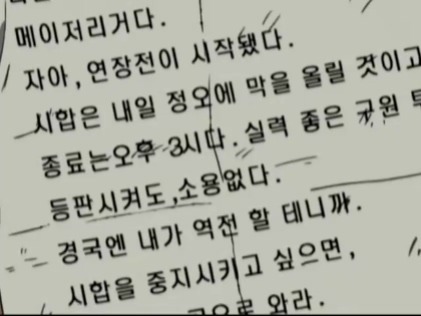 메이저리거다.
자아,연장전이 시작됐다.
시합은 내일 정오에 막을 올릴 것이고
종료는오후 3시다.실력 좋은 구원 투
등판시켜도,소용없다.
경국엔 내가 역전 할 테니까.
시합을 중지시키고 싶으면,
으로 와라.